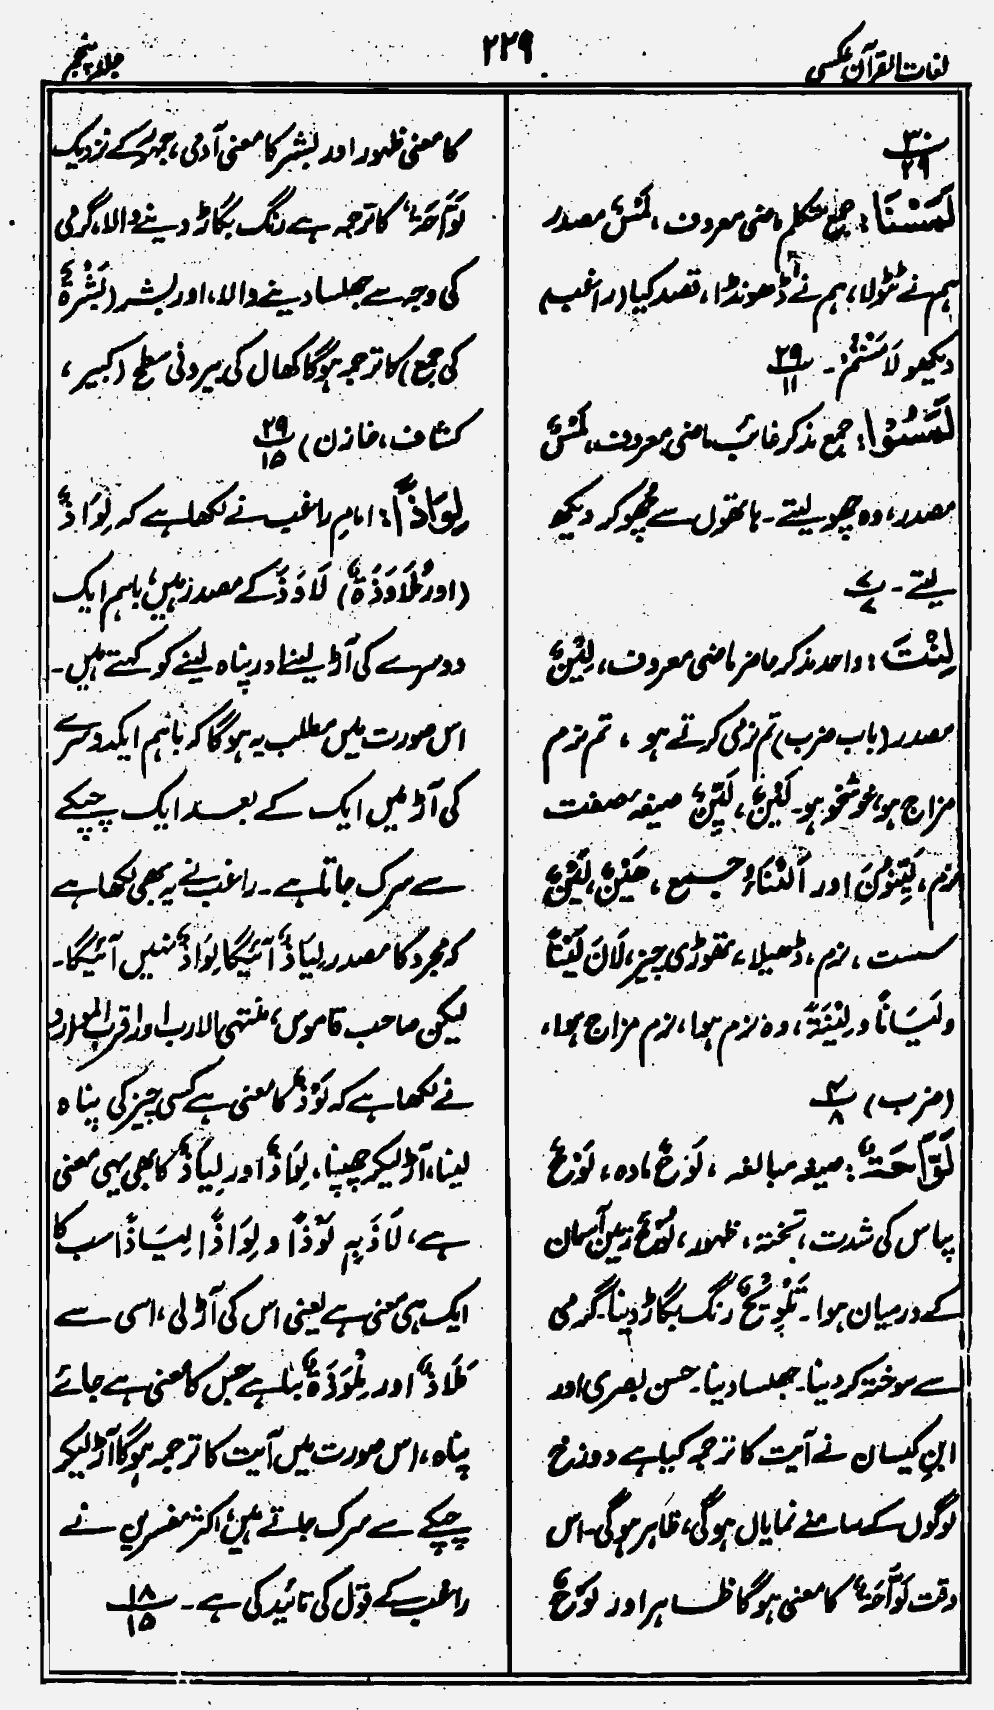 لغات القرآن عکسی
۲۲۹
جلد پنجم
۳۰
۲۹
لَمَسْنَا: جمع متکلم ماضی معروف، لَمْسٌ مصدر
ہم نے ٹٹولا، ہم نے ڈھونڈا، قصد کیا (راغب)
دیکھو لَامَسْتُمْ۔ ۲۹/۱۱
لَمَسُوْا: جمع مذکر غائب ماضی معروف، لَمْسٌ
مصدر، وہ چھو لیتے۔ ہاتھوں سے چھو کر دیکھ
لیتے۔ ۷/۷
لِنْتَ: واحد مذکر حاضر ماضی معروف، لِیْنٌ
مصدر (باب ضرب) تم نرمی کرتے ہو، تم نرم
مزاج ہو، خوشخو ہو۔ لَیْنٌ، لَیِّنٌ صیغہ صفت
نرم، لَیِّنُوْنَ اور اَلْیِنَاءُ جمع، ھَیْنٌ، لَیْنٌ
سست، نرم، ڈھیلا، تھوڑی چیز، لَانَ لَیْنًا
و لَیَانًا و لِیْنَۃً، وہ نرم ہوا، نرم مزاج ہوا،
(ضرب) ۴/۸
لَوَّاحَۃٌ: صیغہ مبالغہ، لَوْحٌ مادہ، لَوْحٌ
پیاس کی شدت، تختہ، ظہور، لُوْحٌ زمین آسمان
کے درمیان ہوا۔ تَلْوِیْحٌ رنگ بگاڑ دینا۔ گرمی
سے سوختہ کر دینا۔ جھلسا دینا۔ حسن بصری اور
ابن کیسان نے آیت کا ترجمہ کیا ہے دوزخ
لوگوں کے سامنے نمایاں ہوگی، ظاہر ہوگی۔ اس
وقت لَوَّاحَۃٌ کا معنی ہوگا ظاہر اور لَوْحٌ
کا معنی ظہور اور بشر کا معنی آدمی، جمہور کے نزدیک
لَوَّاحَۃٌ کا ترجمہ ہے رنگ بگاڑ دینے والا، گرمی
کی وجہ سے جھلسا دینے والا، اور بشر (بَشَرَۃٌ
کی جمع) کا ترجمہ ہوگا کھال کی بیرونی سطح (کبیر،
کشاف، خازن) ۲۹/۱۵
لِوَاذًا: امام راغب نے لکھا ہے کہ لِوَاذٌ
(اور مُلَاوَذَۃٌ) لَاوَذَ کے مصدر ہیں، باہم ایک
دوسرے کی آڑ لینے اور پناہ لینے کو کہتے ہیں۔
اس صورت میں مطلب یہ ہوگا کہ باہم ایک دوسرے
کی آڑ میں ایک کے بعد ایک چپکے
سے سرک جاتا ہے۔ راغب نے یہ بھی لکھا ہے
کہ مجرد کا مصدر لِیَاذٌ آئیگا لِوَاذٌ نہیں آئیگا۔
لیکن صاحب قاموس، منتہی الارب اور اقرب الموارد
نے لکھا ہے کہ لَوْذٌ کا معنی ہے کسی چیز کی پناہ
لینا، آڑ لیکر چھپنا، لِوَاذٌ اور لِیَاذٌ کا بھی یہی معنی
ہے، لَاذَ بِہٖ لَوْذًا و لِوَاذًا لِیَاذًا سب کا
ایک ہی معنی ہے یعنی اس کی آڑ لی، اسی سے
مَلَاذٌ اور مِلْوَذَۃٌ بنا ہے جس کا معنی ہے جائے
پناہ، اس صورت میں آیت کا ترجمہ ہوگا آڑ لیکر
چپکے سے سرک جاتے ہیں، اکثر مفسرین نے
راغب کے قول کی تائید کی ہے۔ ۱۸/۱۵